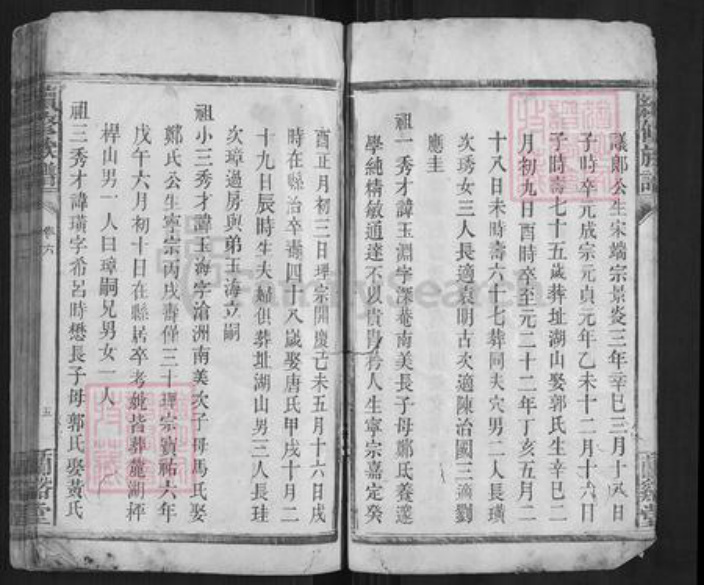 議郎公生宋端宗景炎三年辛巳三月十八日
子時卒元成宗元貞元年乙未十二月十六日
子時壽七十五歲葬址湖山娶郭氏生辛巳二
月初九日酉時卒至元二十二年丁亥五月二
十八日未時壽六十七葬同夫穴男二人長璜
次琇女三人長適袁明古次適陳治國三適劉
應圭
祖一秀才諱玉淵字深菴南美長子母鄭氏養邃
學純精敏通達不以貴驕人生寧宗嘉定癸
酉正月初三日理宗開慶己未五月十六日戌
時在縣治卒壽四十八歲娶唐氏甲戌十月二
十九日辰時生夫婦俱葬址湖山男三人長珪
次璋過房與弟玉海立嗣
祖小三秀才諱玉海字滄洲南美次子母馬氏娶
鄭氏公生寧宗丙戌壽僅三十理宗寶祐六年
戊午六月初十日在縣居卒考妣皆葬龍湖坪
桿山男一人曰璋嗣兄男女一人
祖三秀才諱璜字希呂時懋長子母郭氏娶黃氏
續修族譜
卷六
五
蘭谿堂
FamilySearch